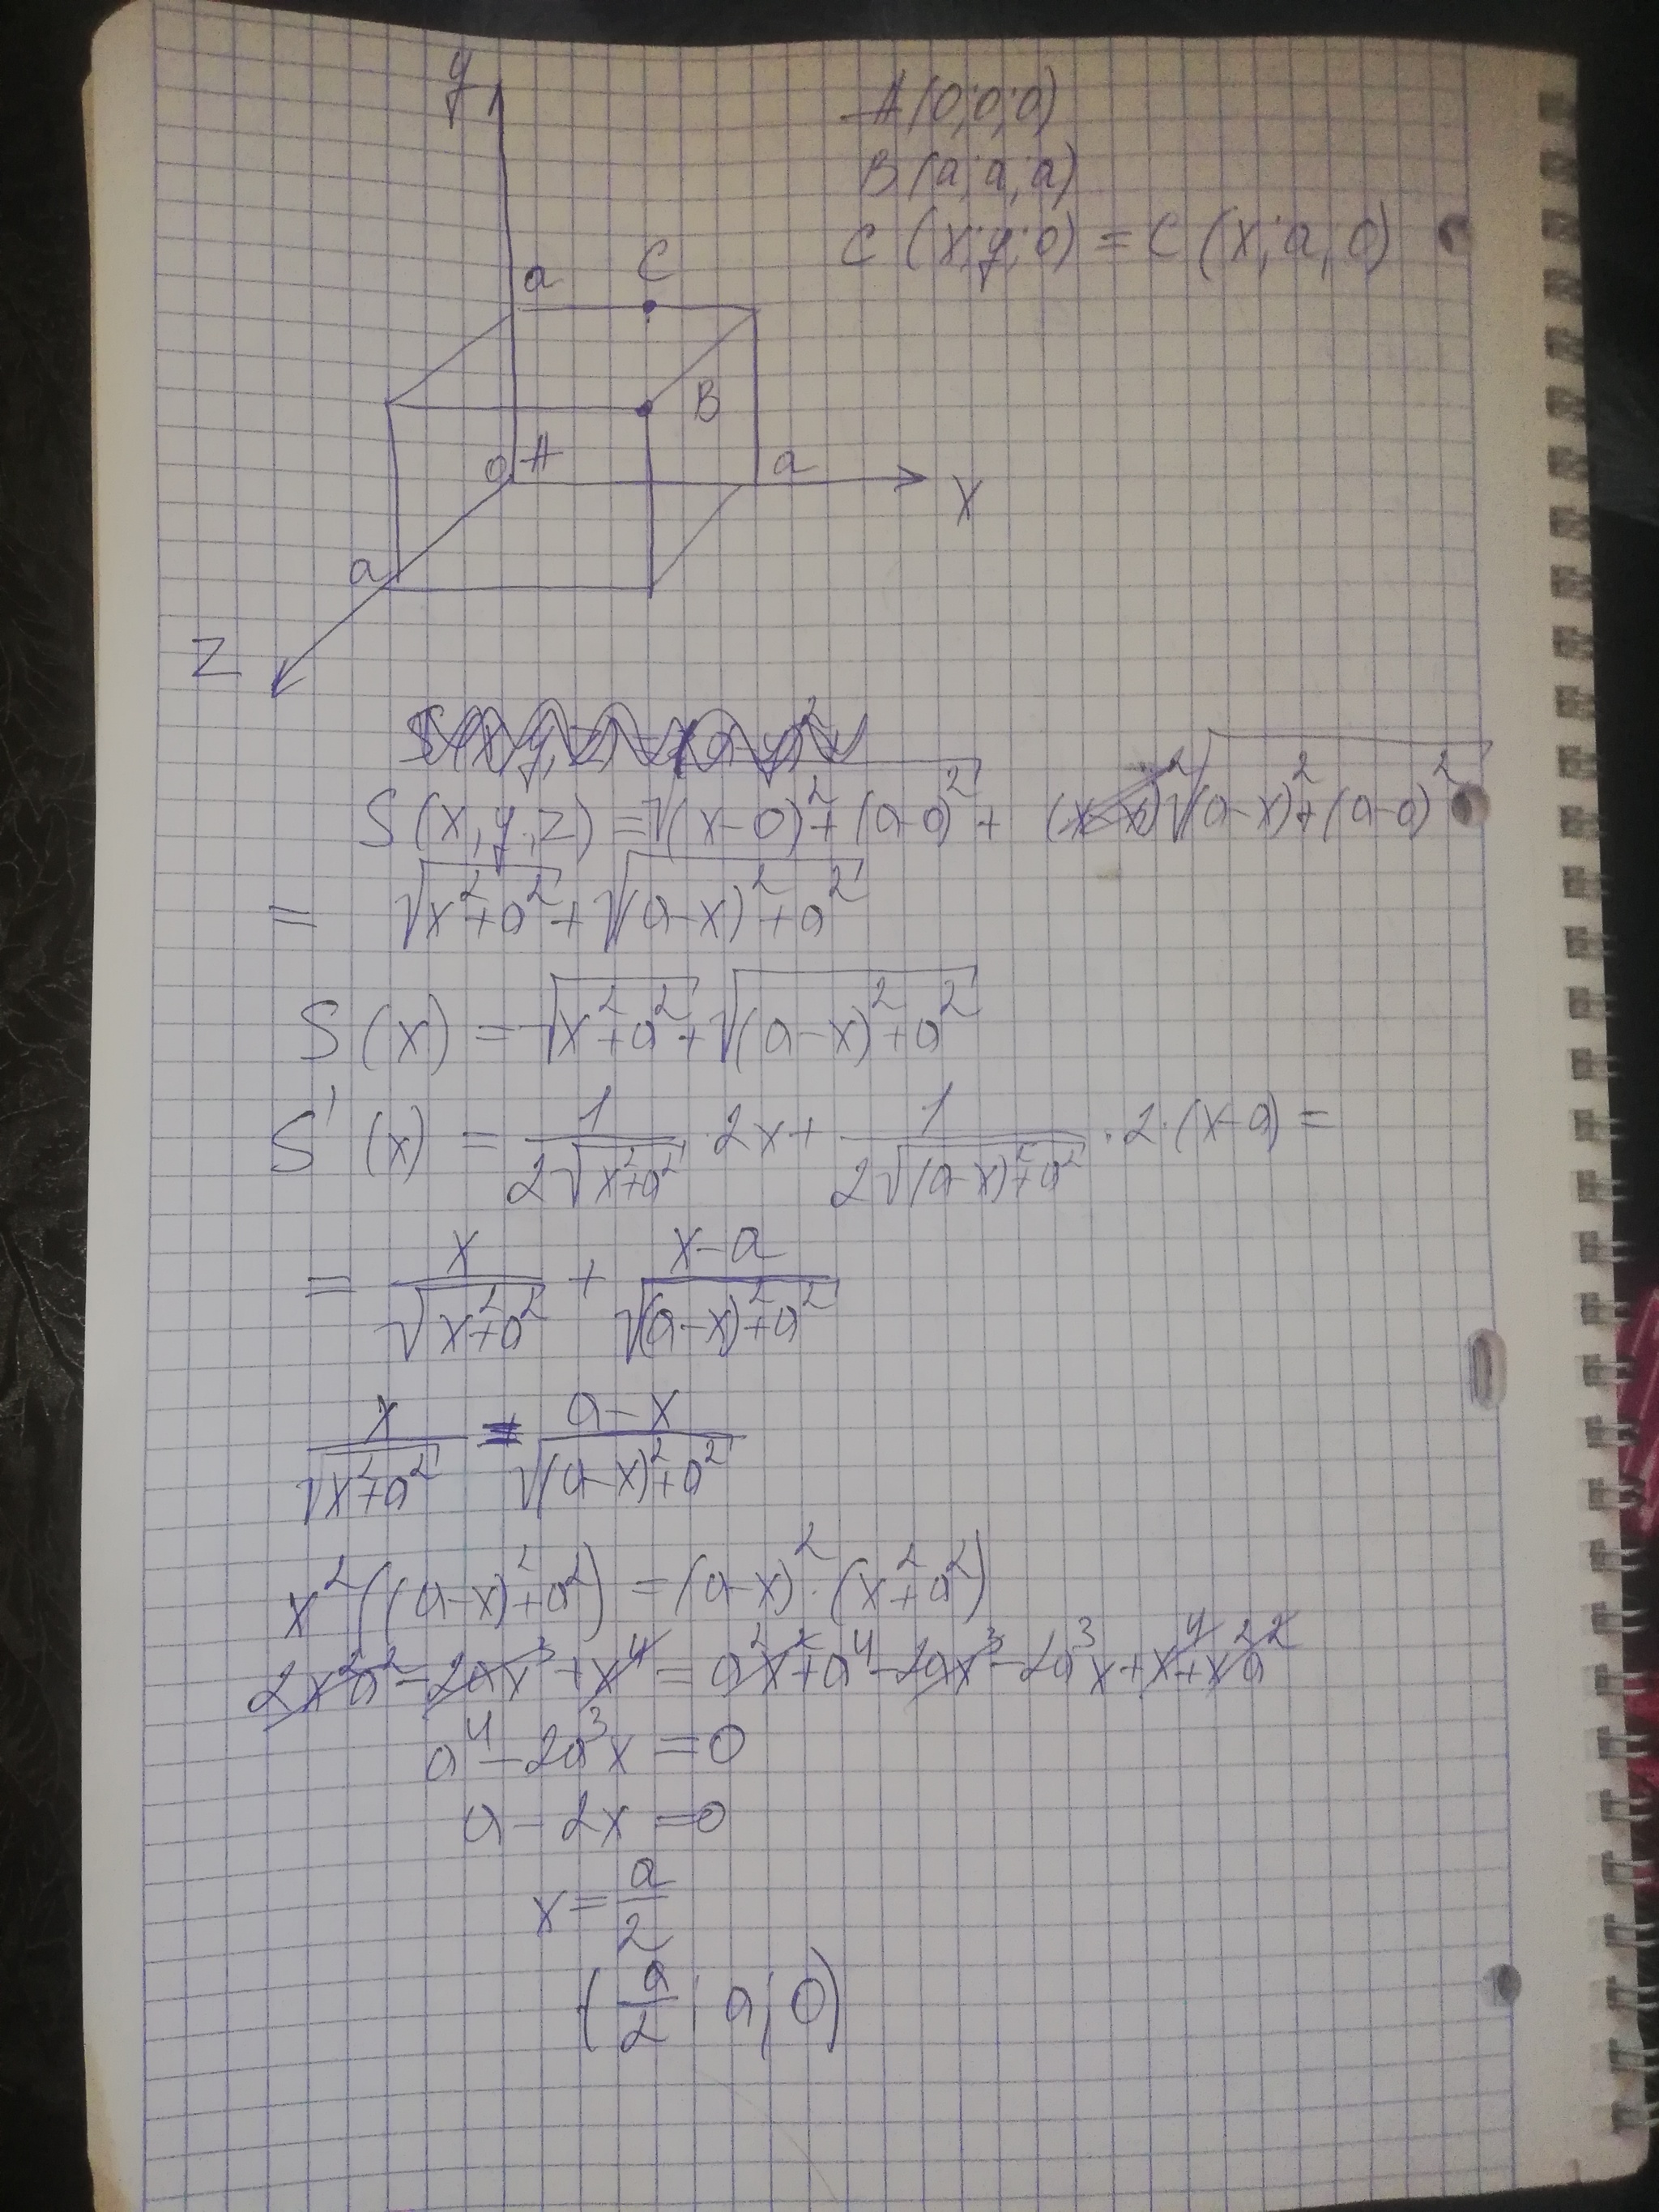 y
A(0;0;0)
B(a;a;a)
C(x;y;0) = C(x;a;0)
a C
B
0 A a
X
a
Z
S(x,y,z) = √((x-0)²+(a-0)²) + √((a-x)²+(a-0)²)
= √(x²+a²) + √((a-x)²+a²)
S(x) = √(x²+a²) + √((a-x)²+a²)
S'(x) = 1/(2√(x²+a²)) · 2x + 1/(2√((a-x)²+a²)) · 2·(x-a) =
= x/√(x²+a²) + (x-a)/√((a-x)²+a²)
x/√(x²+a²) = (a-x)/√((a-x)²+a²)
x²((a-x)²+a²) = (a-x)²·(x²+a²)
2x²a² - 2ax³ + x⁴ = a²x² + a⁴ - 2ax³ - 2a³x + x⁴ + x²a²
a⁴ - 2a³x = 0
a - 2x = 0
x = a/2
(a/2; a; 0)